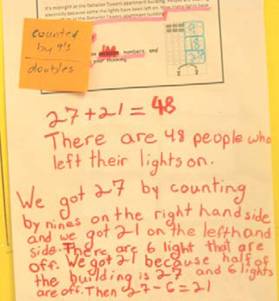 It's midnight at the
apartment building. People are
electricity because some the lights have been left on.
apartment building?
counted
by 9's
doubles
numbers, and
your thinking
9
18
27
27+21=48
There are 48 people who
left their lights on.
We got 27 by counting
by nines on the right hand side
and we got 21 on the lefthand
side. There are 6 light that are
off. We got 21 because half of
the building is 27 and 6 lights
are off. Then 27-6=21